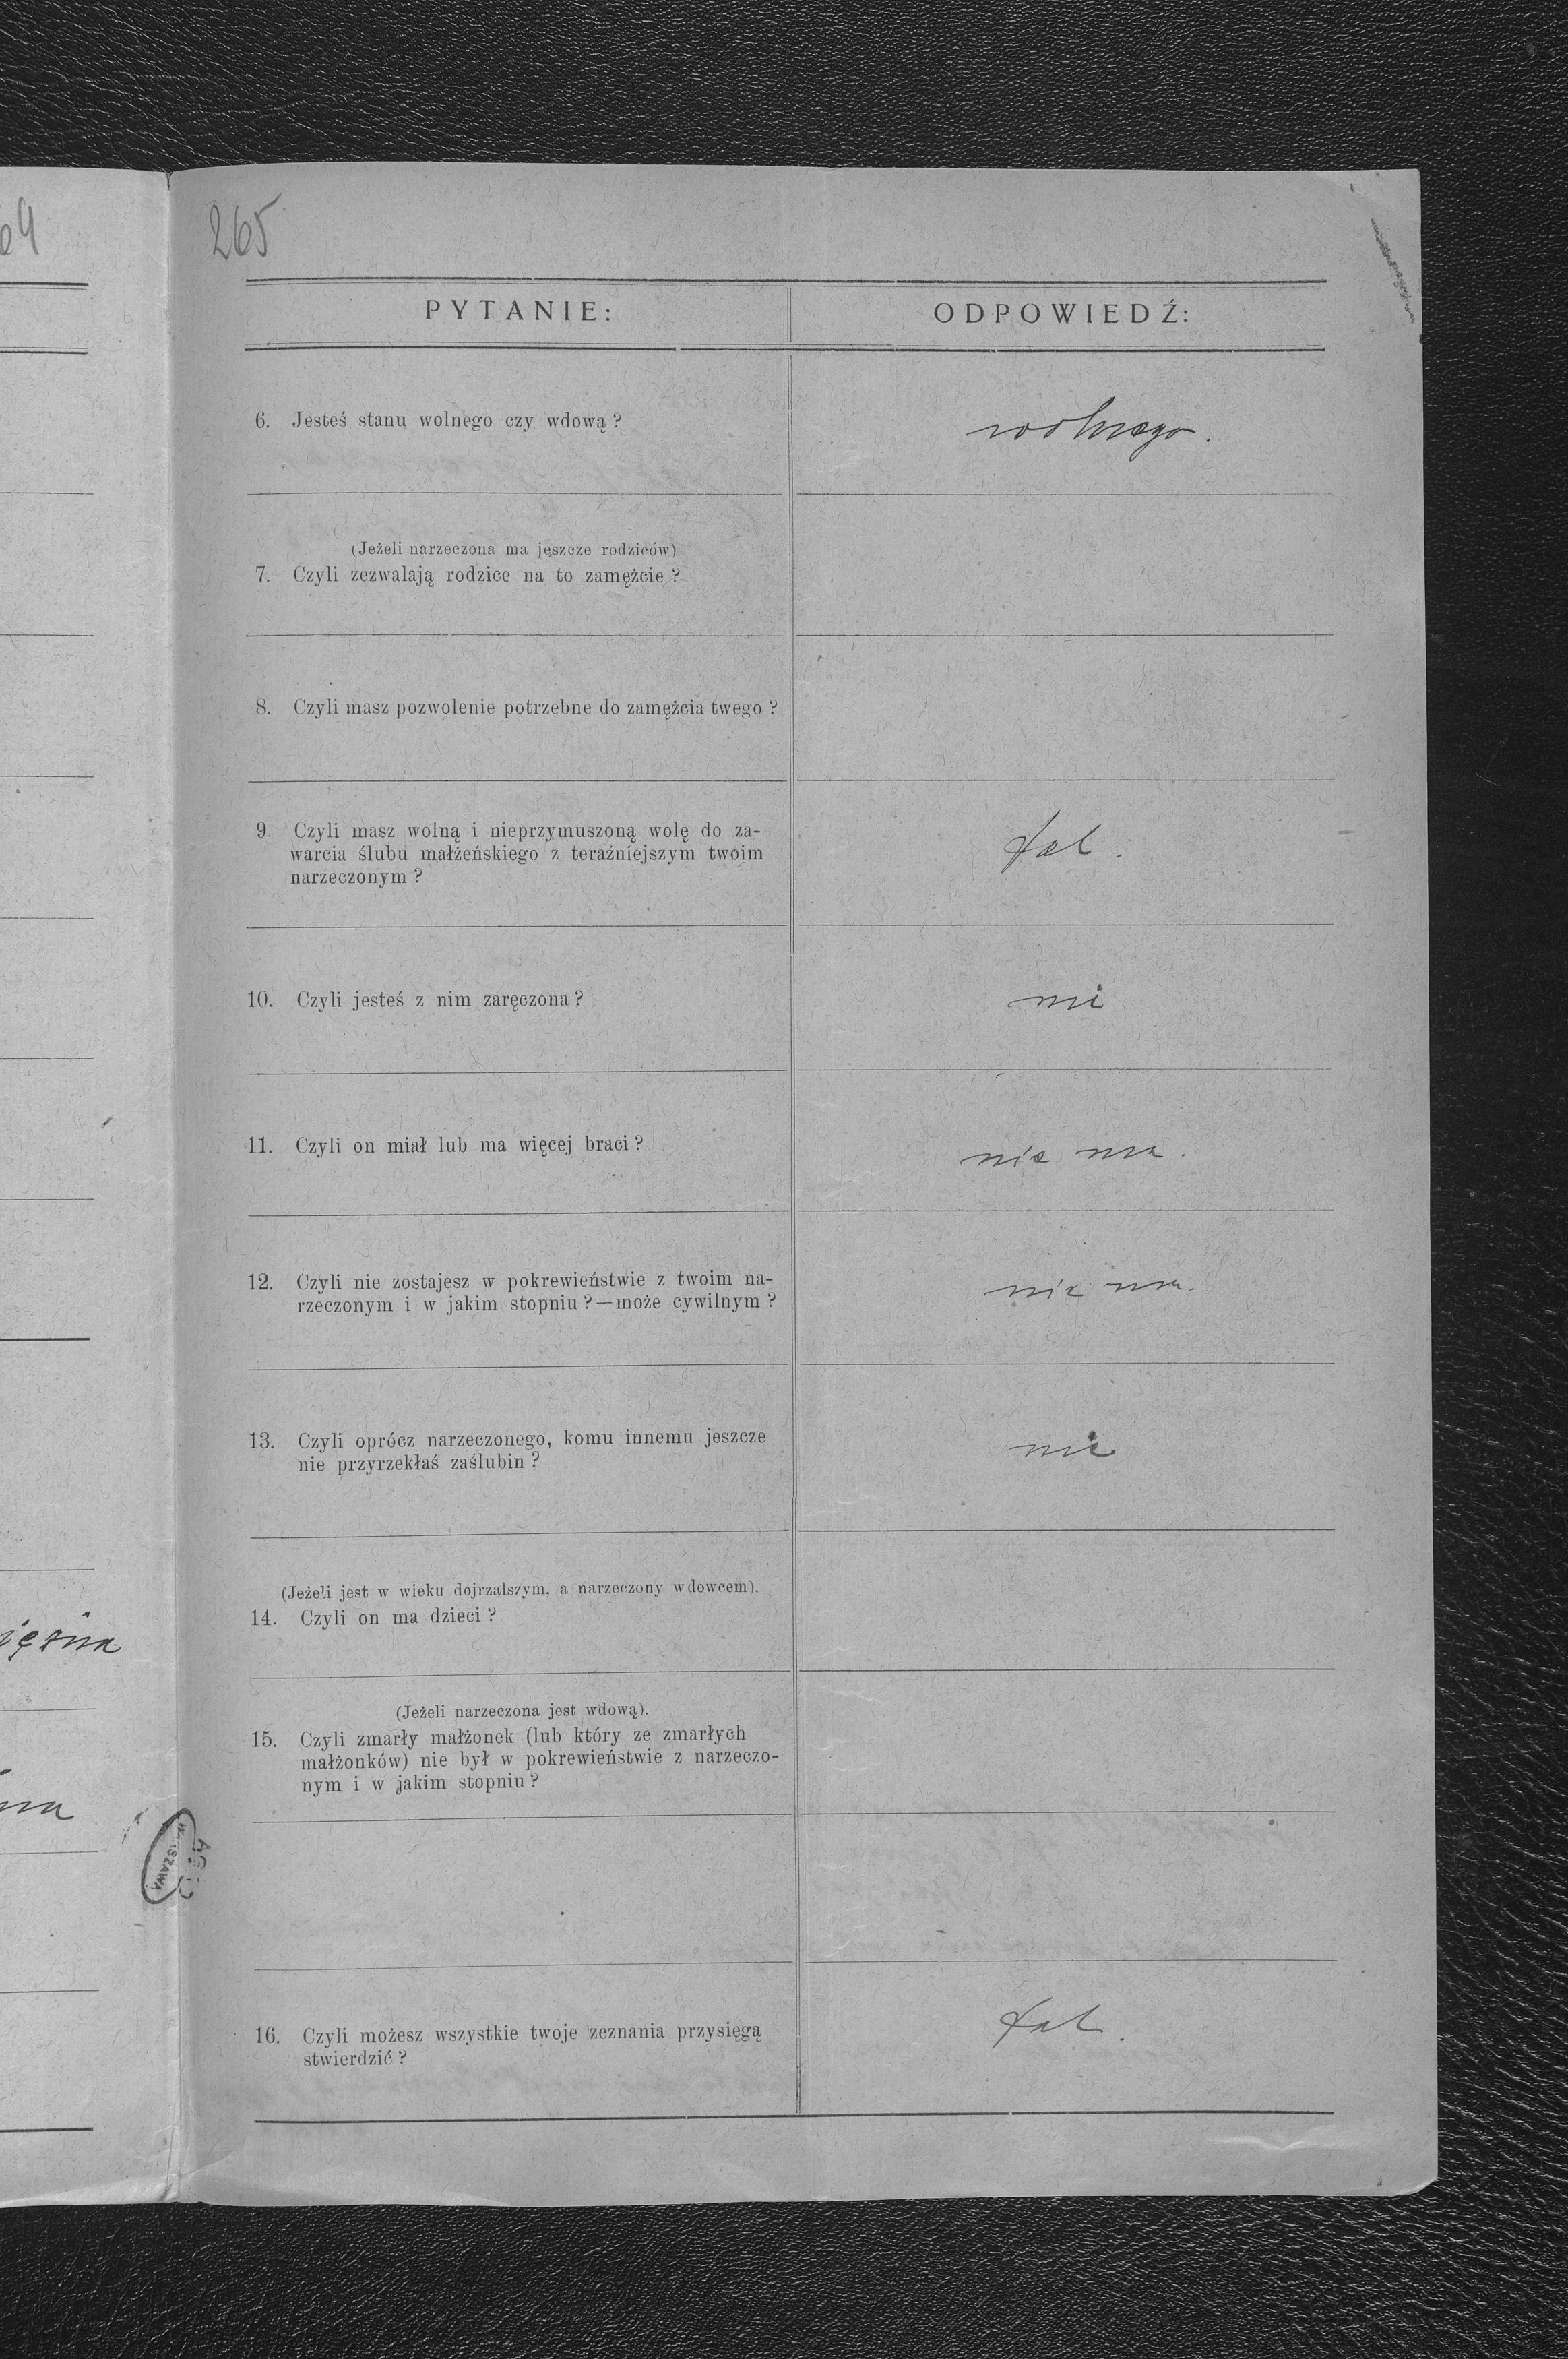 265
PYTANIE: ODPOWIEDŹ:
6. Jesteś stanu wolnego czy wdową? wolnego.
(Jeżeli narzeczona ma jeszcze rodziców).
7. Czyli zezwalają rodzice na to zamężcie?
8. Czyli masz pozwolenie potrzebne do zamężcia twego?
9. Czyli masz wolną i nieprzymuszoną wolę do za-
warcia ślubu małżeńskiego z teraźniejszym twoim
narzeczonym?
tak.
10. Czyli jesteś z nim zaręczona? nie
11. Czyli on miał lub ma więcej braci? nie ma.
12. Czyli nie zostajesz w pokrewieństwie z twoim na-
rzeczonym i w jakim stopniu?—może cywilnym?
nie ma.
13. Czyli oprócz narzeczonego, komu innemu jeszcze
nie przyrzekłaś zaślubin?
nie
(Jeżeli jest w wieku dojrzalszym, a narzeczony wdowcem).
14. Czyli on ma dzieci?
(Jeżeli narzeczona jest wdową).
15. Czyli zmarły małżonek (lub który ze zmarłych
małżonków) nie był w pokrewieństwie z narzeczo-
nym i w jakim stopniu?
WARSZAWA
16. Czyli możesz wszystkie twoje zeznania przysięgą
stwierdzić?
tak.